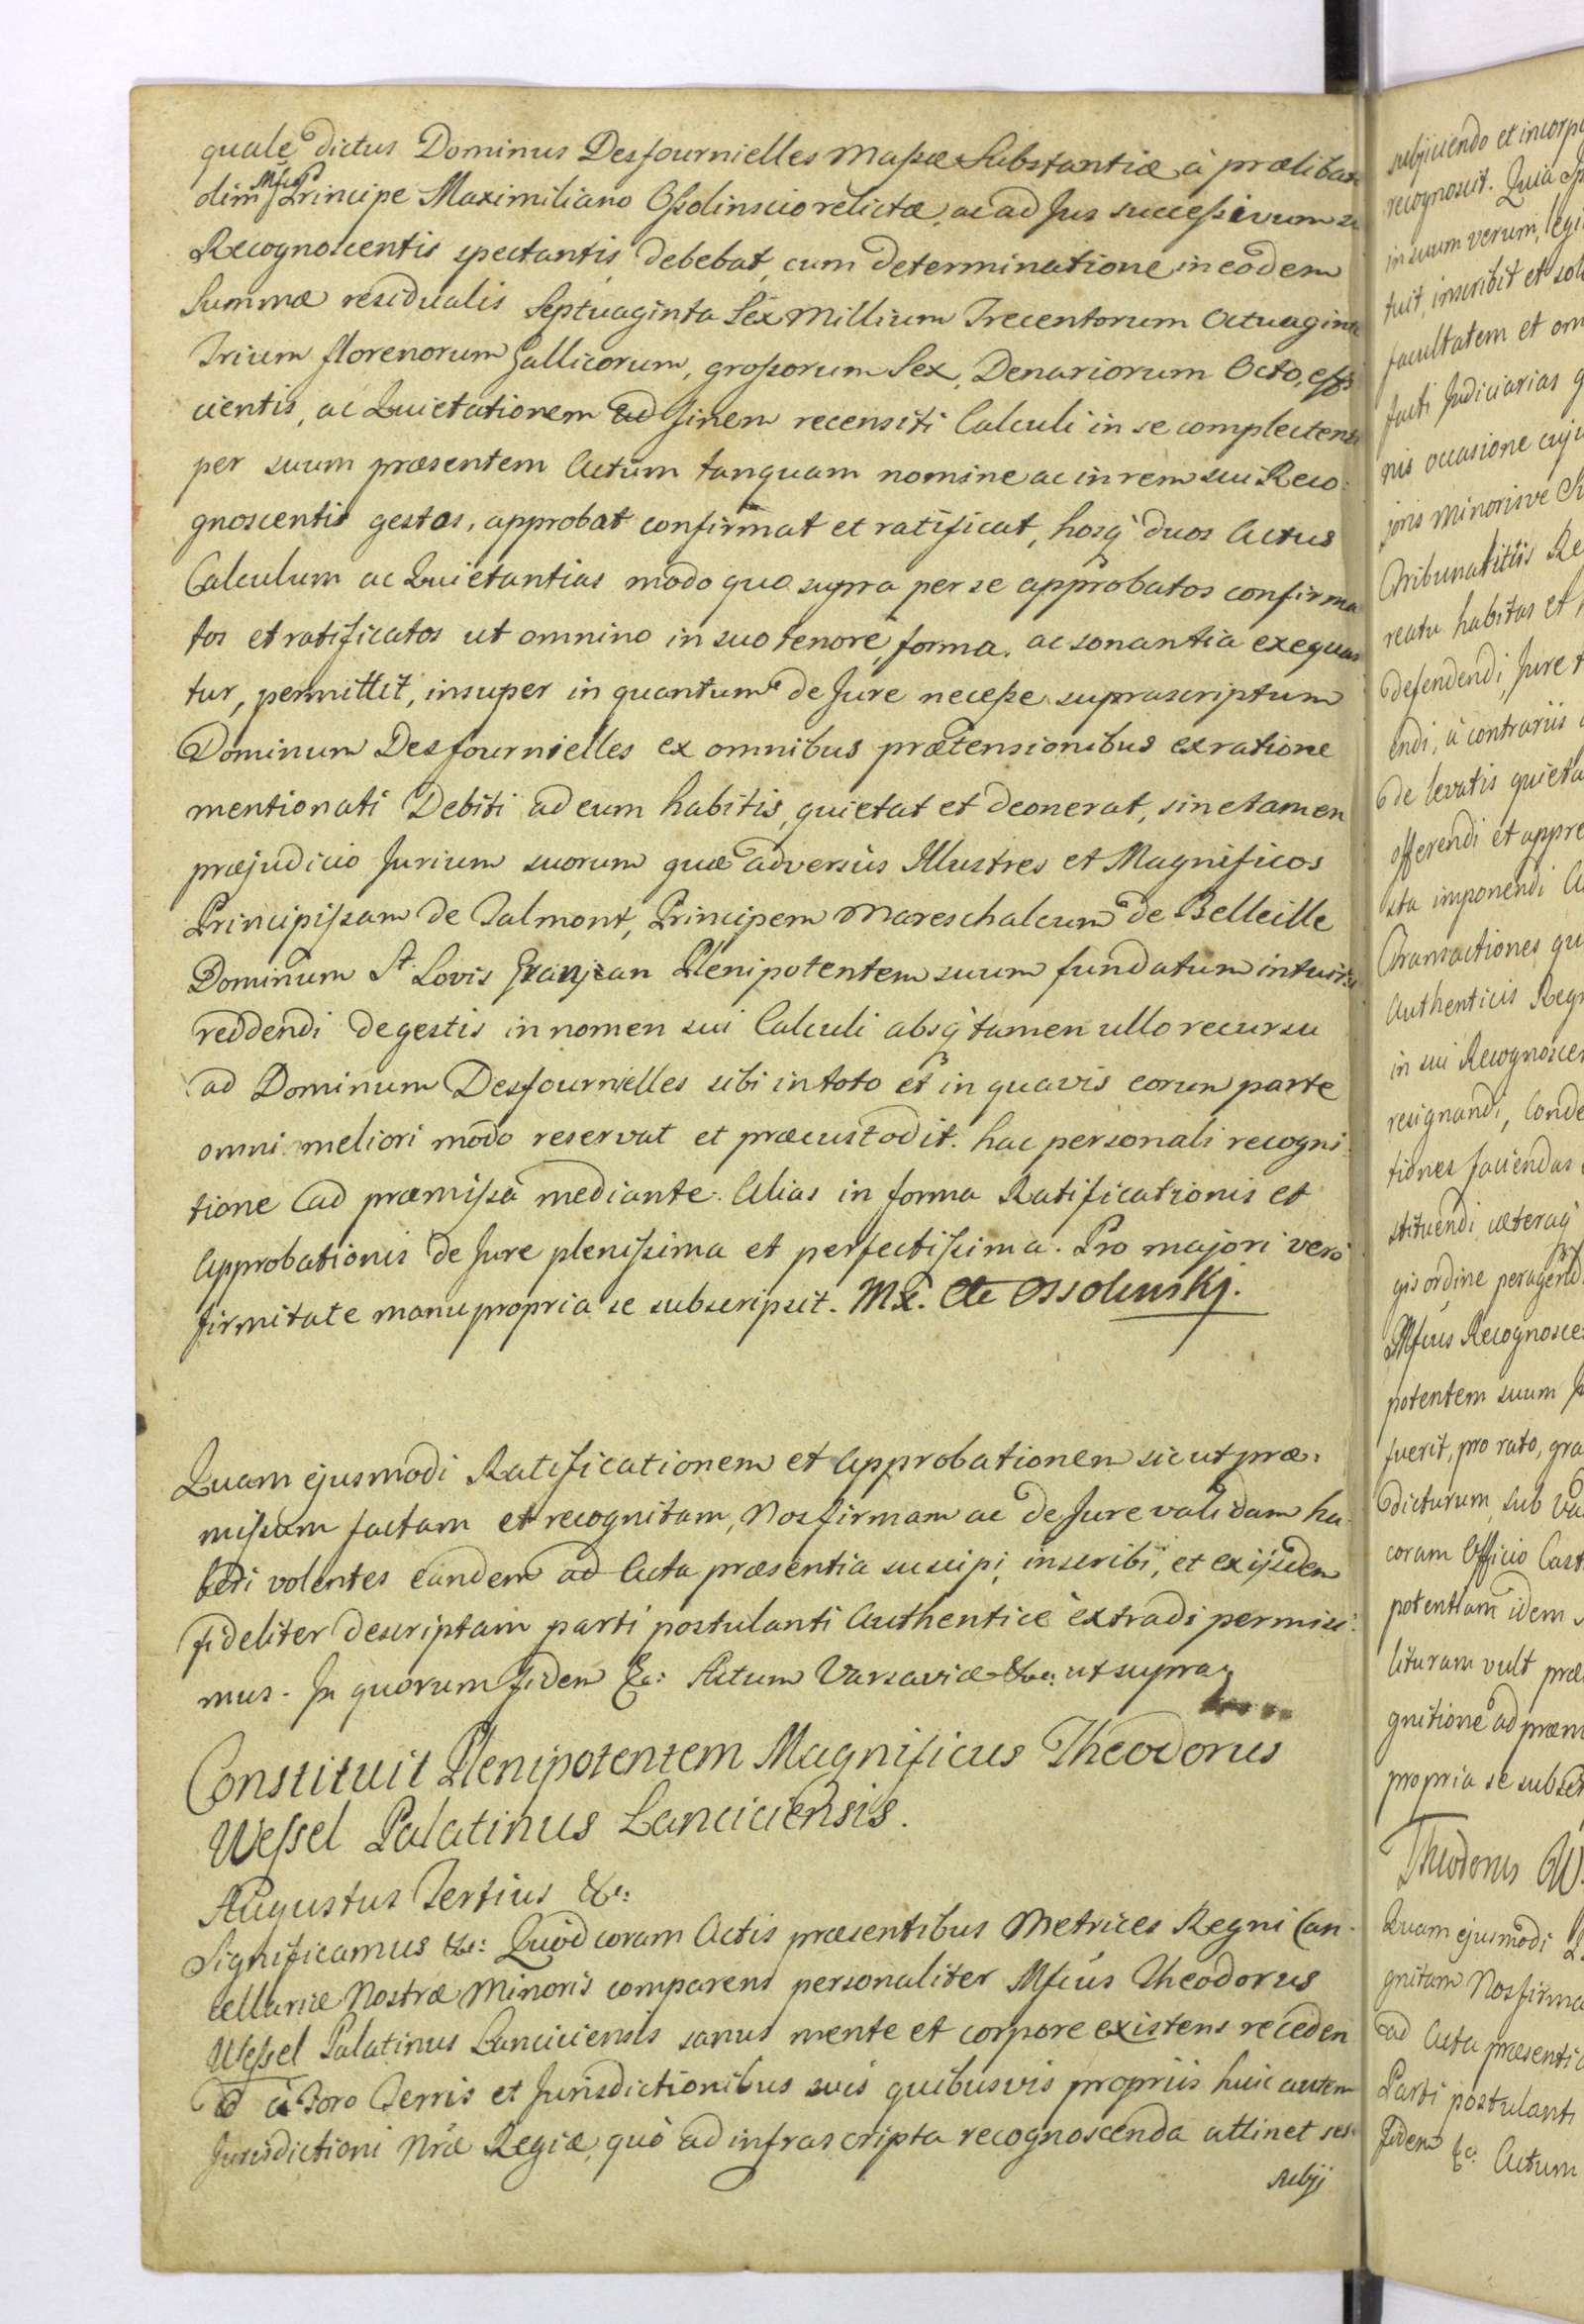 quale dictus Dominus Desfournielles Massæ Substantiæ à prælibato
olim Mfco Principe Maximiliano Ossolinscio relictæ, ac ad Jus successivum sui
Recognoscentis spectantis debebat, cum determinatione in eodem
Summæ residualis Septuaginta Sex Millium Trecentorum Octuaginta
Trium florenorum Gallicorum, grossorum Sex, Denariorum Octo, effi
cientis, ac Quietationem ad finem recensiti Calculi in se complectens
per suum præsentem Actum tanquam nomine ac in rem sui Reco:
gnoscentis gestos, approbat confirmat et ratificat, hosq duos Actus
Calculum ac Quietantias modo quo supra per se approbatos confirma
tos et ratificatos ut omnino in suo tenore, forma, ac sonantia exequan
tur, permittit, insuper in quantum de Jure necesse suprascriptum
Dominum Desfournielles ex omnibus prætensionibus ex ratione
mentionati Debiti ad eum habitis, quietat et deonerat, sine tamen
præjudicio Jurium suorum quæ adversus Illustres et Magnificos
Principissam de Talmont, Principem Mareschalcum de Belleille
Dominum St. Lovis Granjean Plenipotentem suum fundatum intuitu
reddendi de gestis in nomen sui Calculi absq tamen ullo recursu
ad Dominum Desfournielles sibi in toto et in quavis eorum parte
omni meliori modo reservat et præcustodit. hac personali recogni
tione ad præmissa mediante. Alias in forma Ratificationis et
Approbationis de Jure plenissima et perfectissima. Pro majori vero
firmitate manu propria se subscripsit. Mx. Cte Ossolinskj.
Quam ejusmodi Ratificationem et Approbationem sicut præ:
missum factam et recognitam, Nos firmam ac de Jure validam ha
beri volentes eandem ad Acta præsentia suscipi, inscribi, et ex ijsdem
fideliter descriptam parti postulanti Authentice extradi permisi:
mus. In quorum fidem &c: Actum Varsaviæ &c: ut supra
Constituit Plenipotentem Magnificus Theodorus
Wessel Palatinus Lanciciensis.
Augustus Tertius &c:
Significamus &c: Quod coram Actis præsentibus Metrices Regni Can-
cellariæ Nostræ Minoris comparens personaliter Mfcus Theodorus
Wessel Palatinus Lanciciensis sanus mente et corpore existens receden
do à Foro Terris et Jurisdictionibus suis quibusvis propriis huic autem
Jurisdictioni Nræ Regiæ, quò ad infrascripta recognoscenda attinet sese
subji
subjiciendo et incorpo
recognoscit. Quia Ip
in suum verum, legi
tuit, inscribit et sole
facultatem et om
facti Judiciarias q
nis occasione cuju
joris minorisve
Tribunalitiis Re
reatu habitas et
defendendi, Jure t
endi, à contrariis
de levatis quieta
offerendi et appre
sta imponendi
Transactiones qu
Authenticis Regn
in sui Recognoscen
resignandi, Conde
tiones faciendas
stituendi, cæteraq
gis ordine peragend
Mfcus Recognosce
potentem suum
fuerit, pro rato, gra
dicturum, sub
coram Officio Cast
potentiam idem
lituram vult præ
gnitione ad præm
propria se subscr
Theodorus W.
Quam ejusmodi
gnitam Nos firma
ad Acta præsentia
Parti postulanti
fidem &c: Actum